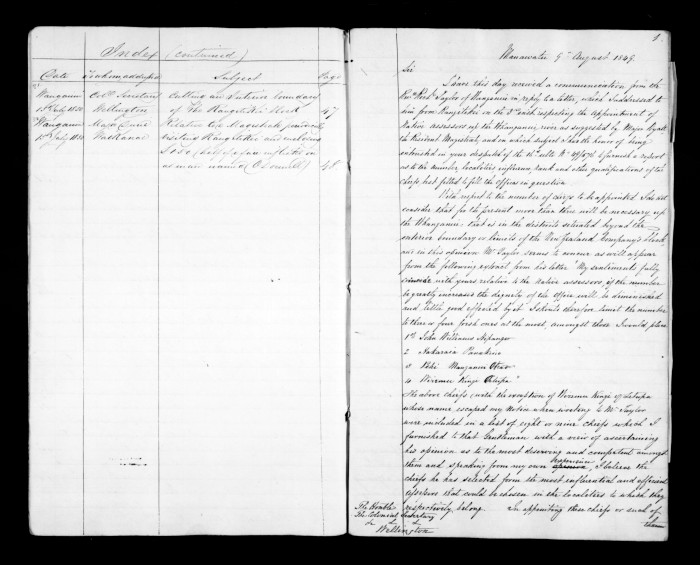 Index (continued)
Date To whom addressed Subject Page
Wanganui Coll. Secretary Cutting an interior boundary
1st July 1850 Wellington of the Rangitikei Block 47
Wanganui Major Relative to
1st July 1850 Waikanae visiting Rangitikei and
upon
man named (O'Connell) 48
1.
Manawatu 9th August 1849
Sir
I have this day received a communication from the
Revd Richd Taylor of Wanganui in reply to a letter, which I addressed to
him from Rangitikei on the 2nd respecting the appointment of
Native assessors up the Wanganui river as suggested by Major Wyatt
the Resident Magistrate, and on which subject I had the honor of being
instructed in your despatch of the to furnish a report
as to the number, localities, influence, rank and other qualifications of the
chiefs best fitted to fill the offices in question
With respect to the number of chiefs to be appointed I do not
consider that for the present more than three will be necessary up
the Whanganui: that is in the districts situated beyond the
interior boundary or limits of the New Zealand Company's Block
and in this opinion Mr Taylor seems to concur as will appear
from the following extract from his letter "My sentiments fully
coincide with yours relative to the Native assessors, if the number
be greatly increased the dignity of the office will be diminished
and little good effected by it. I should therefore limit the number
to three or four fresh ones at the most, amongst those I would place
1st John Williams
2 Nakaraia
3
4 Wiremu Kingi
The above chiefs (with the exception of Wiremu Kingi of
whose name escaped my notice when writing to Mr Taylor
were included in a list of eight or nine chiefs which I
furnished to that Gentleman with a view of ascertaining
his opinion as to the most deserving and competent amongst
them and speaking from my own experience, I believe the
chiefs he has selected from the most influential and efficient
assessors that could be chosen in the localities to which they
respectively belong. In appointing these chiefs or such of
them
The Honble
The Colonial Secretary
Wellington